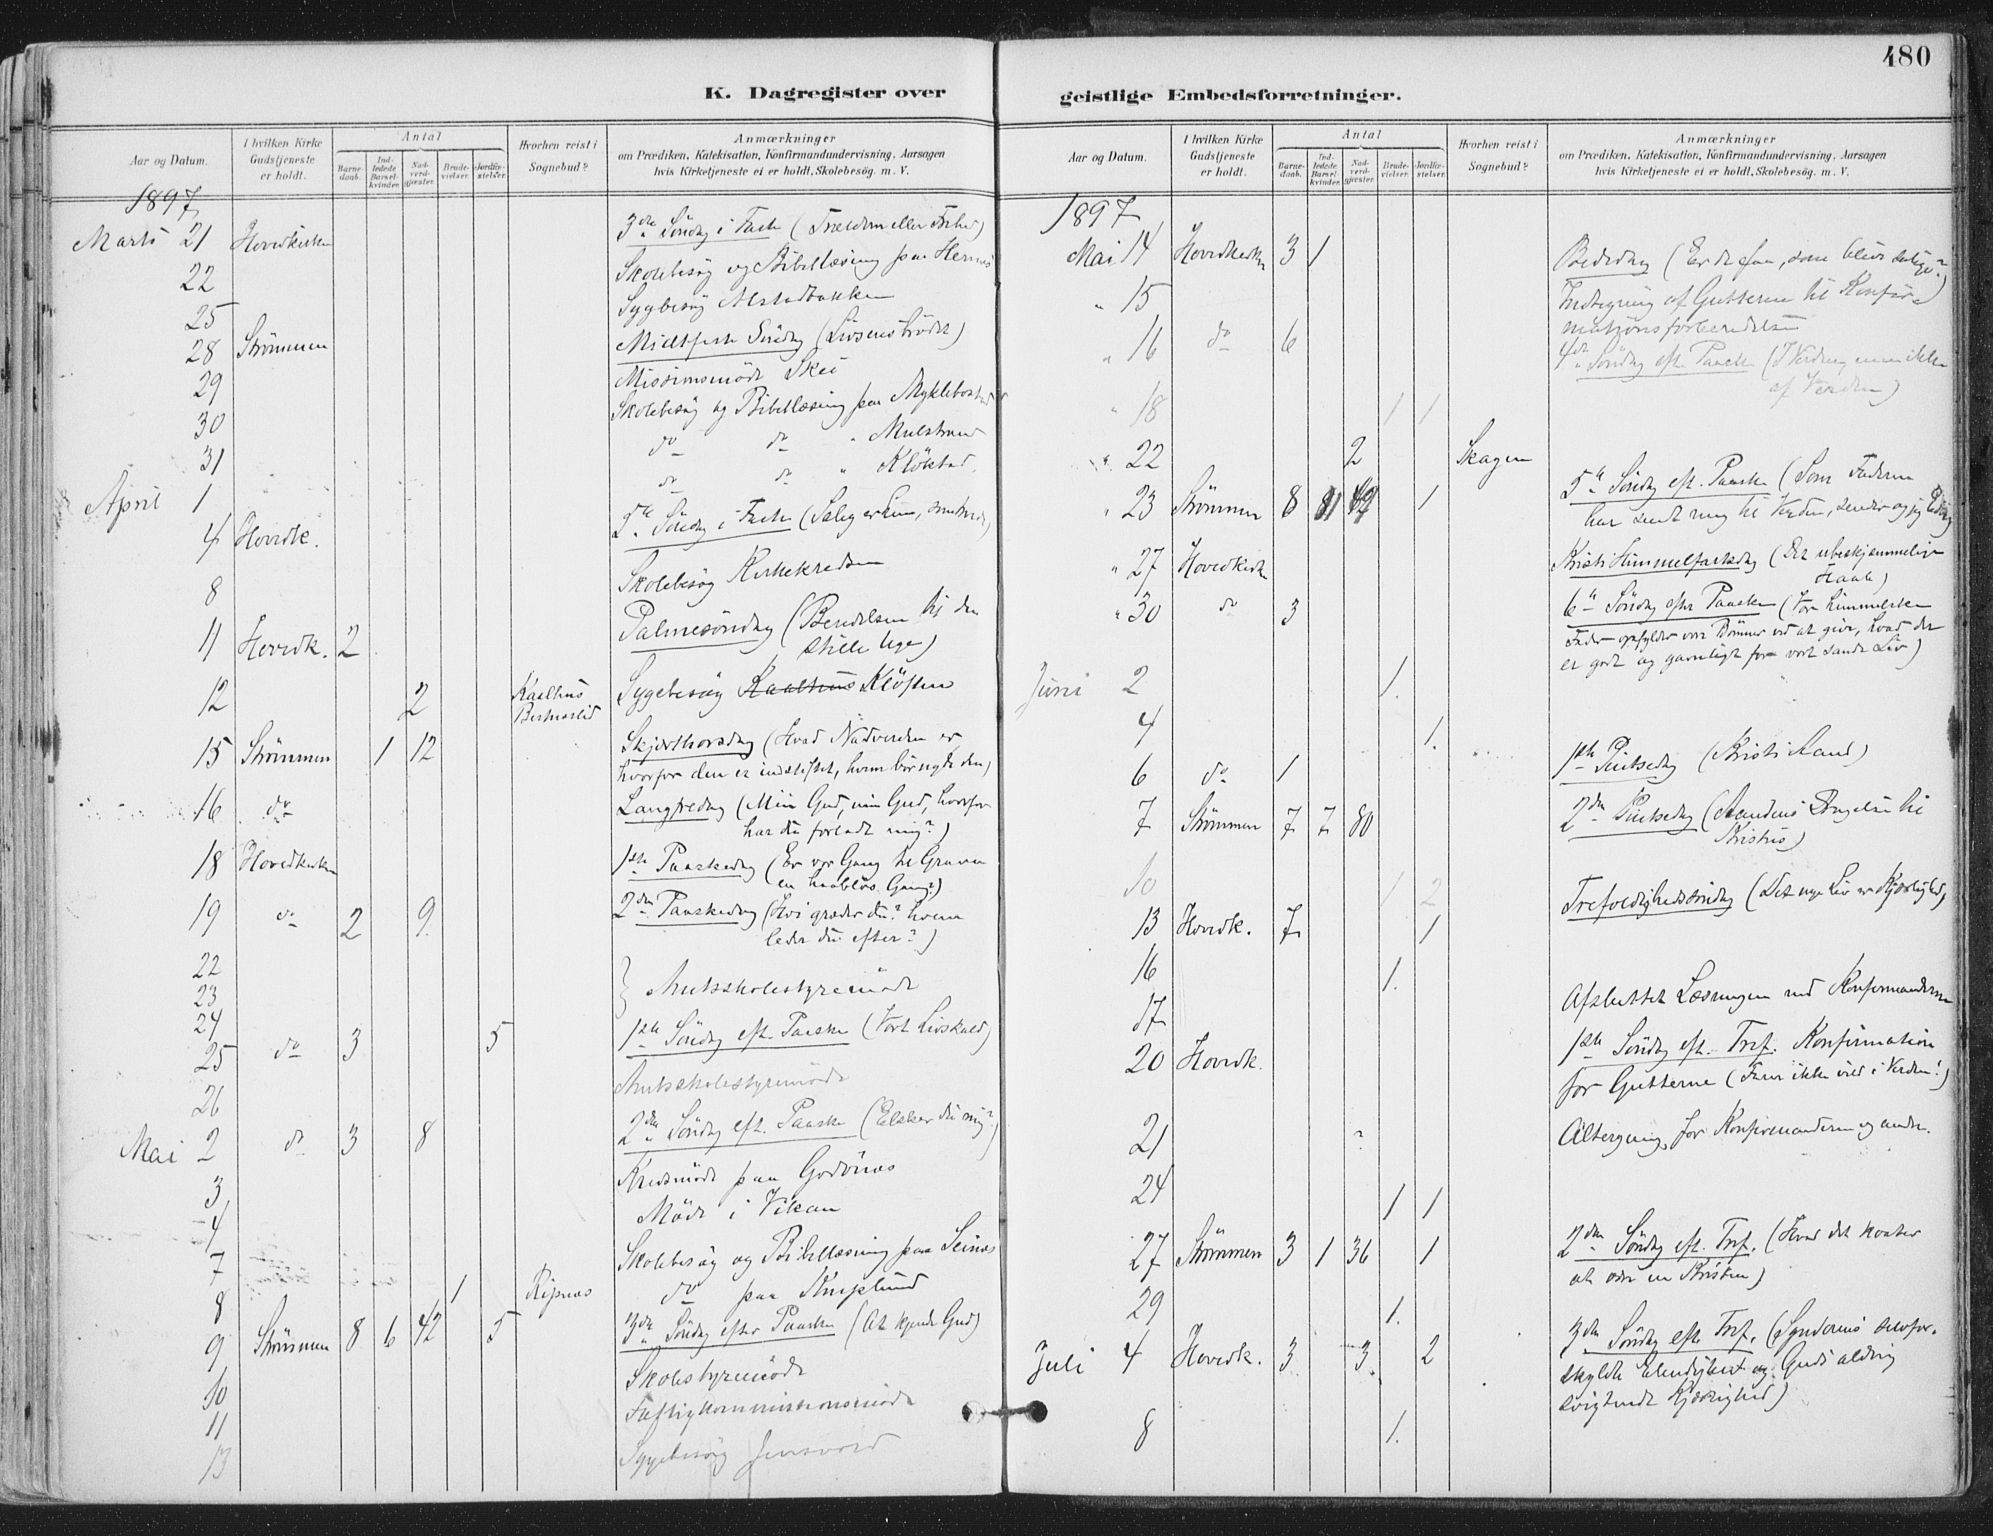 480
K. Dagregister over
geistlige Embedsforretninger.
Aar og Datum.
I hvilken Kirke Gudstjeneste er holdt.
Antal
Barne-daab.
Ind-ledede Barsel-kvinder.
Nad-verd-gjester.
Brude-vielser.
Jordfæ-stelser.
Hvorhen reist i Sognebud?
Anmærkninger
om Prædiken, Katekisation, Konfirmandundervisning, Aarsagen
hvis Kirketjeneste ei er holdt, Skolebesøg. m. V.
1897
Marts 21 Hovedkirken 3die Søndag i Faste (Trældom eller Frihed)
22 Skolebesøg og Bibellæsning paa Hernes
25 Sygebesøg Alstadbakken
28 Strømmen Midtfaste Søndag (Livsens Brød)
29 Missionsmøde Skei
30 Skolebesøg og Bibellæsning paa Myklebostad
31 do do " Mulstrand
April 1 do do " Kløkstad.
4 Hovedk. 5te Søndag i Faste
8 Skolebesøg Kirkekredsen
11 Hovedk. 2 Palmesøndag (Beredelsen til den
stille Uge)
12 2 Kaalhus Sygebesøg Kløften
15 Strømmen 1 12 Skjærthorsdag (Hvad Nadveren er
hvorfor den er indstiftet, hvem bør nyde den)
16 do Langfredag (Min Gud, min Gud, hvorfor
har du forladt mig?)
18 Hovedkirken 1ste Paaskedag (Er vor Gang til Graven
en haabløs Gang?)
19 do 2 9 2den Paaskedag (Hvi græder du? hvem
leder du efter?)
22
23 Amtsskolestyremøde
24
25 do 3 5 1ste Søndag eft. Paaske (Vort Livskald)
26 Amtsskolestyremøde
Mai 2 do 3 8 2den Søndag eft. Paaske (Elsker du mig?)
3 Kredsmøde paa Godønes
4 Møde i Vikan
7 Skolebesøg og Bibellæsning paa Seines
8 1 Ripnes do paa Kniplund
9 Strømmen 8 6 42 5 3die Søndag efter Paaske (At kjende Gud)
10 Skolestyremøde
11 Fattigkommissionsmøde
13 Sygebesøg Jensvold
Aar og Datum.
I hvilken Kirke Gudstjeneste er holdt.
Antal
Barne-daab.
Ind-ledede Barsel-kvinder.
Nad-verd-gjester.
Brude-vielser.
Jordfæ-stelser.
Hvorhen reist i Sognebud?
Anmærkninger
om Prædiken, Katekisation, Konfirmandundervisning, Aarsagen
hvis Kirketjeneste ei er holdt, Skolebesøg. m. V.
1897
Mai 14 Hovedkirken 3 1 Bededag (Er de faa, som blive salige?)
" 15 Indtegning af Gutterne til Konfir-
mationsforberedelsen
" 16 do 6 4de Søndag eft. Paaske (I Verden, men ikke
af Verden)
" 18 1 1
" 22 2 Skagen
" 23 Strømmen 8 1 5te Søndag eft. Paaske (Som Faderen
har sendt mig til Verden, sender og jeg Eder)
" 27 Hovedkirken Kristi Himmelfartsdag (Det ubeskjæmmelige
Haab)
" 30 do 3 6te Søndag efter Paaske (Vor himmelske
Fader opfylder vore Bønner ved at give, hvad der
er godt og gavnligt for vort sande Liv)
Juni 2 1.
4 1.
6 do 1 1ste Pintsedag (Kristi Aand)
7 Strømmen 7 7 80 2den Pintsedag (Aandens Dragelse til
Kristus)
10 1 2
13 Hovedk. 7 1 Trefoldighedssøndag (Det nye Liv er Kjærlighed)
16 1.
17 Afsluttet Læsningen med Konfirmanderne
20 Hovedk. 1ste Søndag eft. Tref. Konfirmation
for Gutterne (Farer ikke vild i Verden!)
21 Altergang for Konfirmanderne og andre.
24 1 1
27 Strømmen 3 1 36 1 2den Søndag eft. Tref. (Hvad det koster
at være en Kristen)
29 1.
Juli 4 Hovedk. 3 3 2 3die Søndag eft. Tref. (Synderens selvfor-
skyldte Elendighed og Guds aldrig
svigtende Kjærlighed)
8 1.